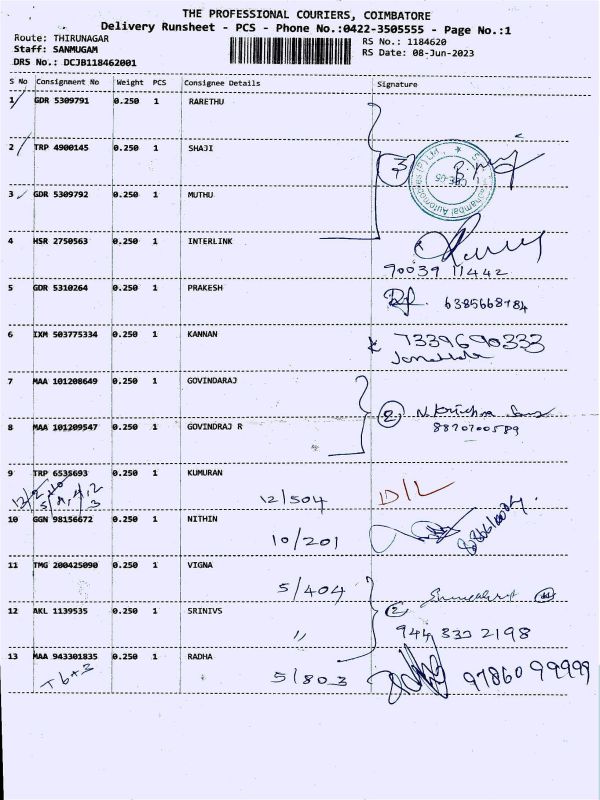 THE PROFESSIONAL COURIERS, COIMBATORE
Delivery Runsheet - PCS - Phone No.:0422-3505555 - Page No.:1
Route: THIRUNAGAR
Staff: SANMUGAM
DRS No.: DCJB118462001
RS No.: 1184620
RS Date: 08-Jun-2023
S No Consignment No Weight PCS Consignee Details Signature
1 GDR 5309791 0.250 1 RARETHU
2 TRP 4900145 0.250 1 SHAJI
3
3 GDR 5309792 0.250 1 MUTHU
4 HSR 2750563 0.250 1 INTERLINK
90039 11442
5 GDR 5310264 0.250 1 PRAKESH
6385668184
6 IXM 503775334 0.250 1 KANNAN
7339690333
7 MAA 101208649 0.250 1 GOVINDARAJ
2
8 MAA 101209547 0.250 1 GOVINDRAJ R
8870700589
9 TRP 6535693 0.250 1 KUMURAN
12/504 D/L
10 GGN 98156672 0.250 1 NITHIN
10/201
11 TMG 200425090 0.250 1 VIGNA
5/404
12 AKL 1139535 0.250 1 SRINIVS
2
" 944 332 2198
13 MAA 943301835 0.250 1 RADHA
5/803 97860 99999